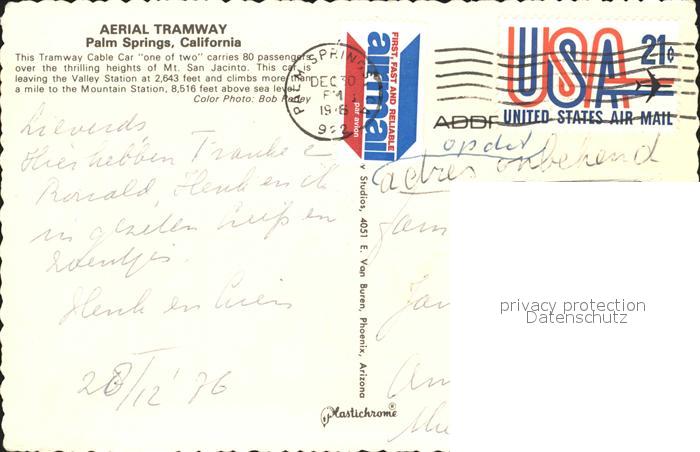 AERIAL TRAMWAY
Palm Springs, California
This Tramway Cable Car "one of two" carries 80 passengers
over the thrilling heights of Mt. San Jacinto. This car
leaving the Valley Station at 2,643 feet and climbs more than
a mile to the Mountain Station, 8,516 feet above sea level.
Color Photo: Bob
PALM SPRINGS
DEC 30
PM
1976
922
FIRST, FAST AND RELIABLE
airmail
par avion
USA 21¢
UNITED STATES AIR MAIL
ADDR
op dit
adres onbekend
Lieverds,
Hier hebben
Ronald, Henk en ik
in gezeten
Henk en
28/12 '76
Studios, 4051 E. Van Buren, Phoenix, Arizona
Plastichrome®
privacy protection
Datenschutz